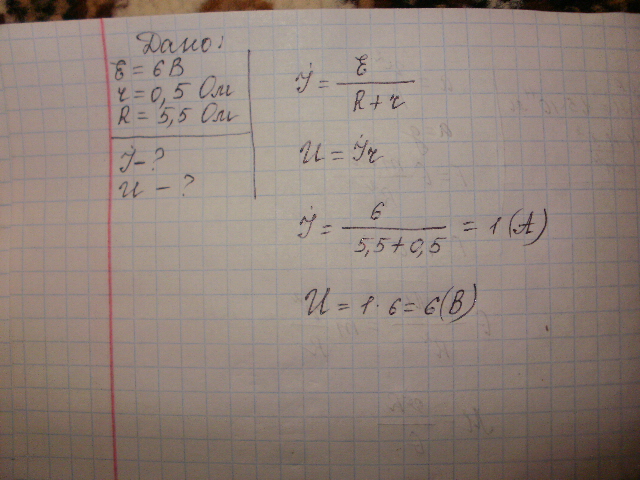 Дано:
Ɛ = 6 В
r = 0,5 Ом
R = 5,5 Ом
J - ?
U - ?
J = Ɛ / (R + r)
U = Jr
J = 6 / (5,5 + 0,5) = 1 (А)
U = 1 · 6 = 6 (В)